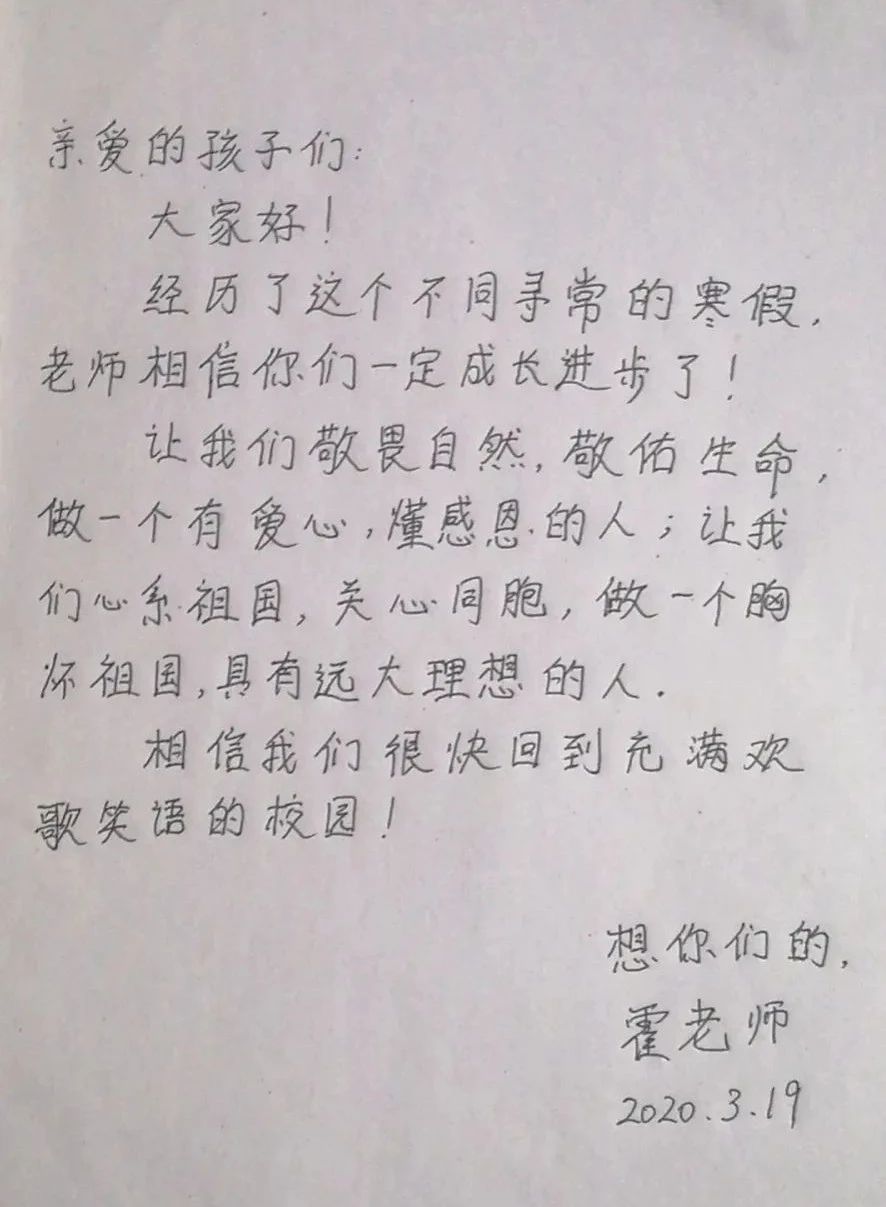 亲爱的孩子们:
大家好!
经历了这个不同寻常的寒假,
老师相信你们一定成长进步了!
让我们敬畏自然,敬佑生命,
做一个有爱心,懂感恩的人;让我
们心系祖国,关心同胞,做一个胸
怀祖国,具有远大理想的人.
相信我们很快回到充满欢
歌笑语的校园!
想你们的,
霍老师
2020.3.19